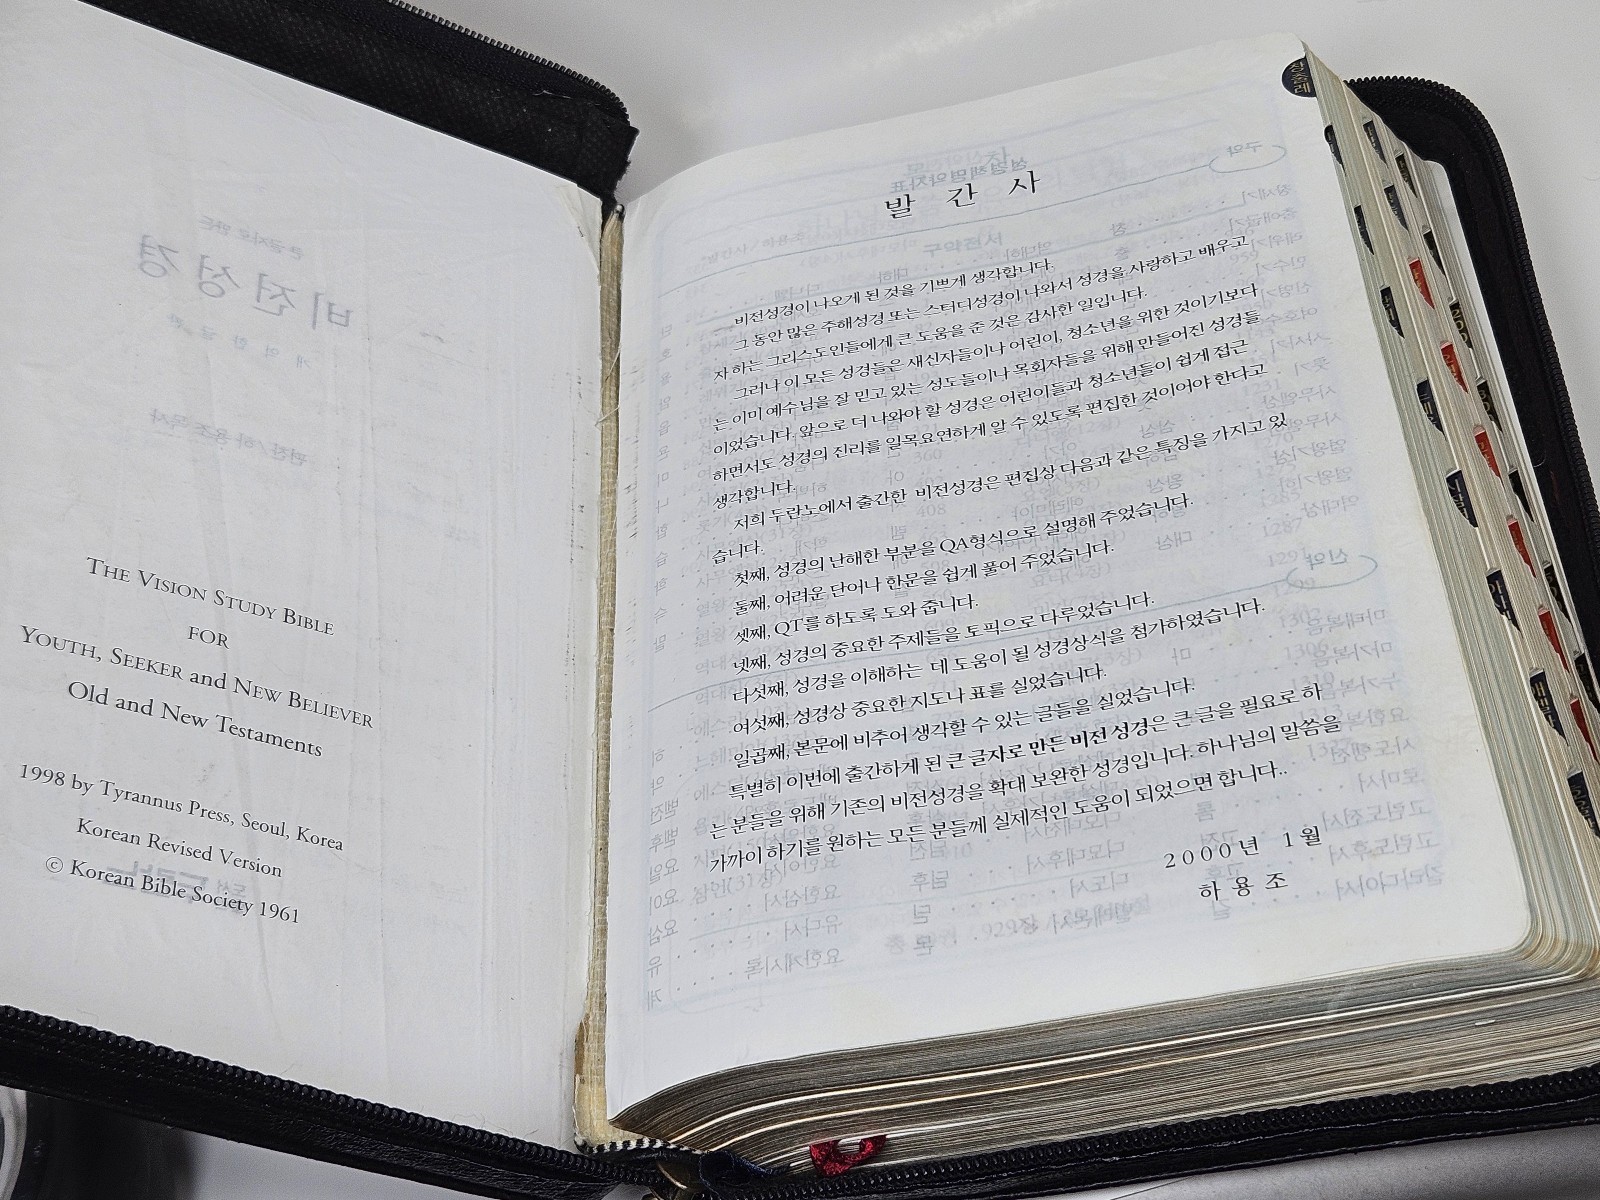 THE VISION STUDY BIBLE
FOR
YOUTH, SEEKER and NEW BELIEVER
Old and New Testaments
1998 by Tyrannus Press, Seoul, Korea
Korean Revised Version
© Korean Bible Society 1961
창출레
발 간 사
비전성경이 나오게 된 것을 기쁘게 생각합니다.
그 동안 많은 주해성경 또는 스터디성경이 나와서 성경을 사랑하고 배우고
자 하는 그리스도인들에게 큰 도움을 준 것은 감사한 일입니다.
그러나 이 모든 성경들은 새신자들이나 어린이, 청소년을 위한 것이기보다
는 이미 예수님을 잘 믿고 있는 성도들이나 목회자들을 위해 만들어진 성경들
이었습니다. 앞으로 더 나와야 할 성경은 어린이들과 청소년들이 쉽게 접근
하면서도 성경의 진리를 일목요연하게 알 수 있도록 편집한 것이어야 한다고
생각합니다.
저희 두란노에서 출간한 비전성경은 편집상 다음과 같은 특징을 가지고 있
습니다.
첫째, 성경의 난해한 부분을 QA형식으로 설명해 주었습니다.
둘째, 어려운 단어나 한문을 쉽게 풀어 주었습니다.
셋째, QT를 하도록 도와 줍니다.
넷째, 성경의 중요한 주제들을 토픽으로 다루었습니다.
다섯째, 성경을 이해하는 데 도움이 될 성경상식을 첨가하였습니다.
여섯째, 성경상 중요한 지도나 표를 실었습니다.
일곱째, 본문에 비추어 생각할 수 있는 글들을 실었습니다.
특별히 이번에 출간하게 된 큰 글자로 만든 비전 성경은 큰 글을 필요로 하
는 분들을 위해 기존의 비전성경을 확대 보완한 성경입니다. 하나님의 말씀을
가까이 하기를 원하는 모든 분들께 실제적인 도움이 되었으면 합니다..
2000년 1월
하용조